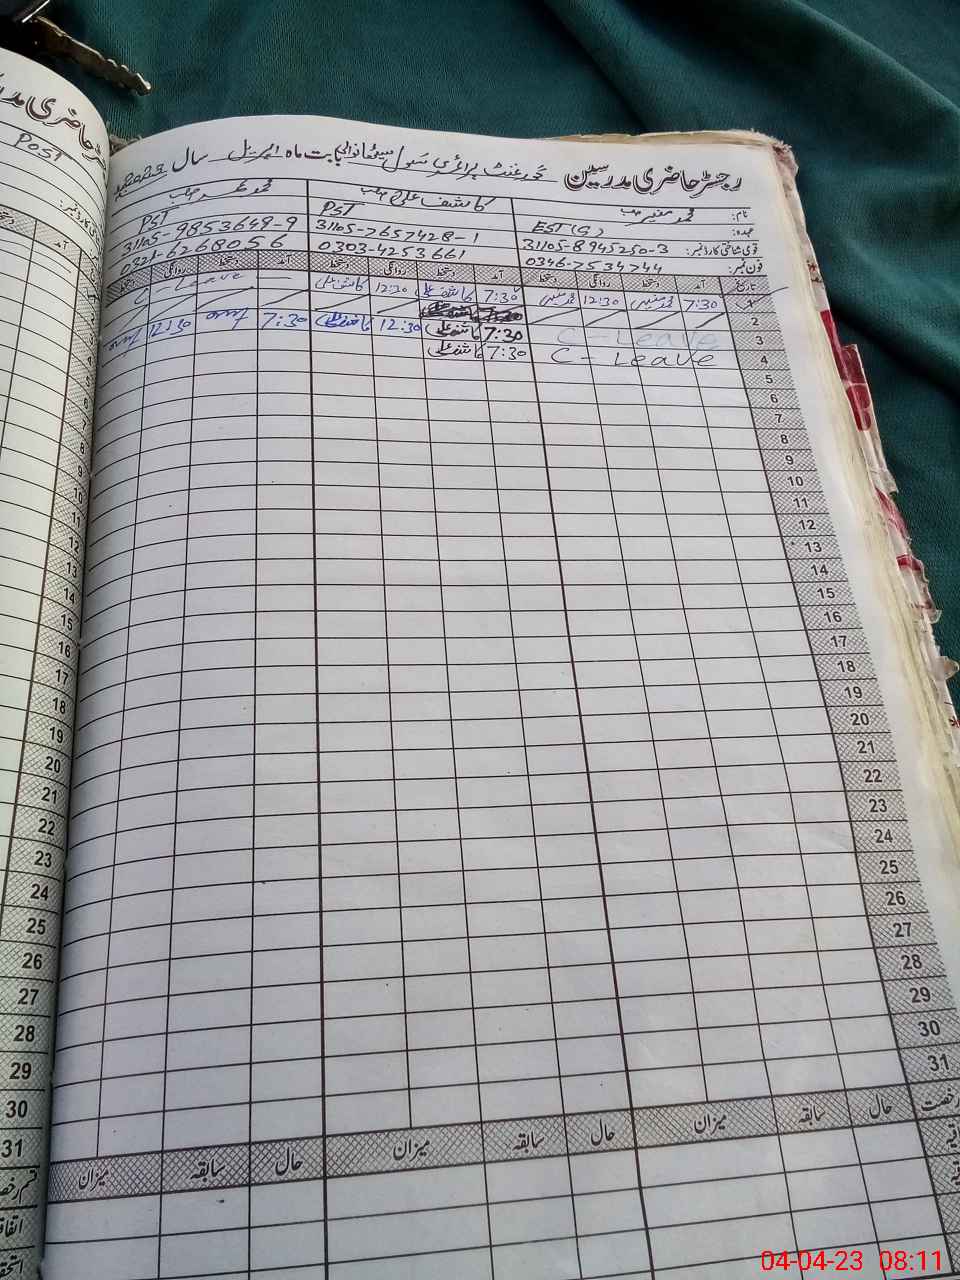 رجسٹر حاضری مدرسین گورنمنٹ پرائمری سکول بابت ماہ اپریل سال 2023
نام: محمد منیر صاحب کاشف علی صاحب محمد عمر صاحب
عہدہ: EST(G) PST PST
قومی شناختی کارڈ نمبر: 31105-8945250-3 31105-7657428-1 31105-9853649-9
فون نمبر: 0346-7534744 0303-4253661 0321-6268056
تاریخ آمد دستخط روانگی دستخط آمد دستخط روانگی دستخط آمد دستخط روانگی دستخط
1 7:30 محمد منیر 12:30 محمد منیر 7:30 کاشف علی 12:30 کاشف علی — C-Leave
2
3 C-Leave 7:30 کاشف علی 12:30 کاشف علی 7:30 عمر 12:30 عمر
4 C-Leave 7:30 کاشف علی
5
6
7
8
9
10
11
12
13
14
15
16
17
18
19
20
21
22
23
24
25
26
27
28
29
30
31
رخصت حال سابقہ میزان حال سابقہ میزان حال سابقہ میزان
حاضری
Post
کارڈ نمبر:
آمد
4
5
6
7
8
9
10
11
12
13
14
15
16
17
18
19
20
21
22
23
24
25
26
27
28
29
30
31
قسم رخصت
04-04-23 08:11